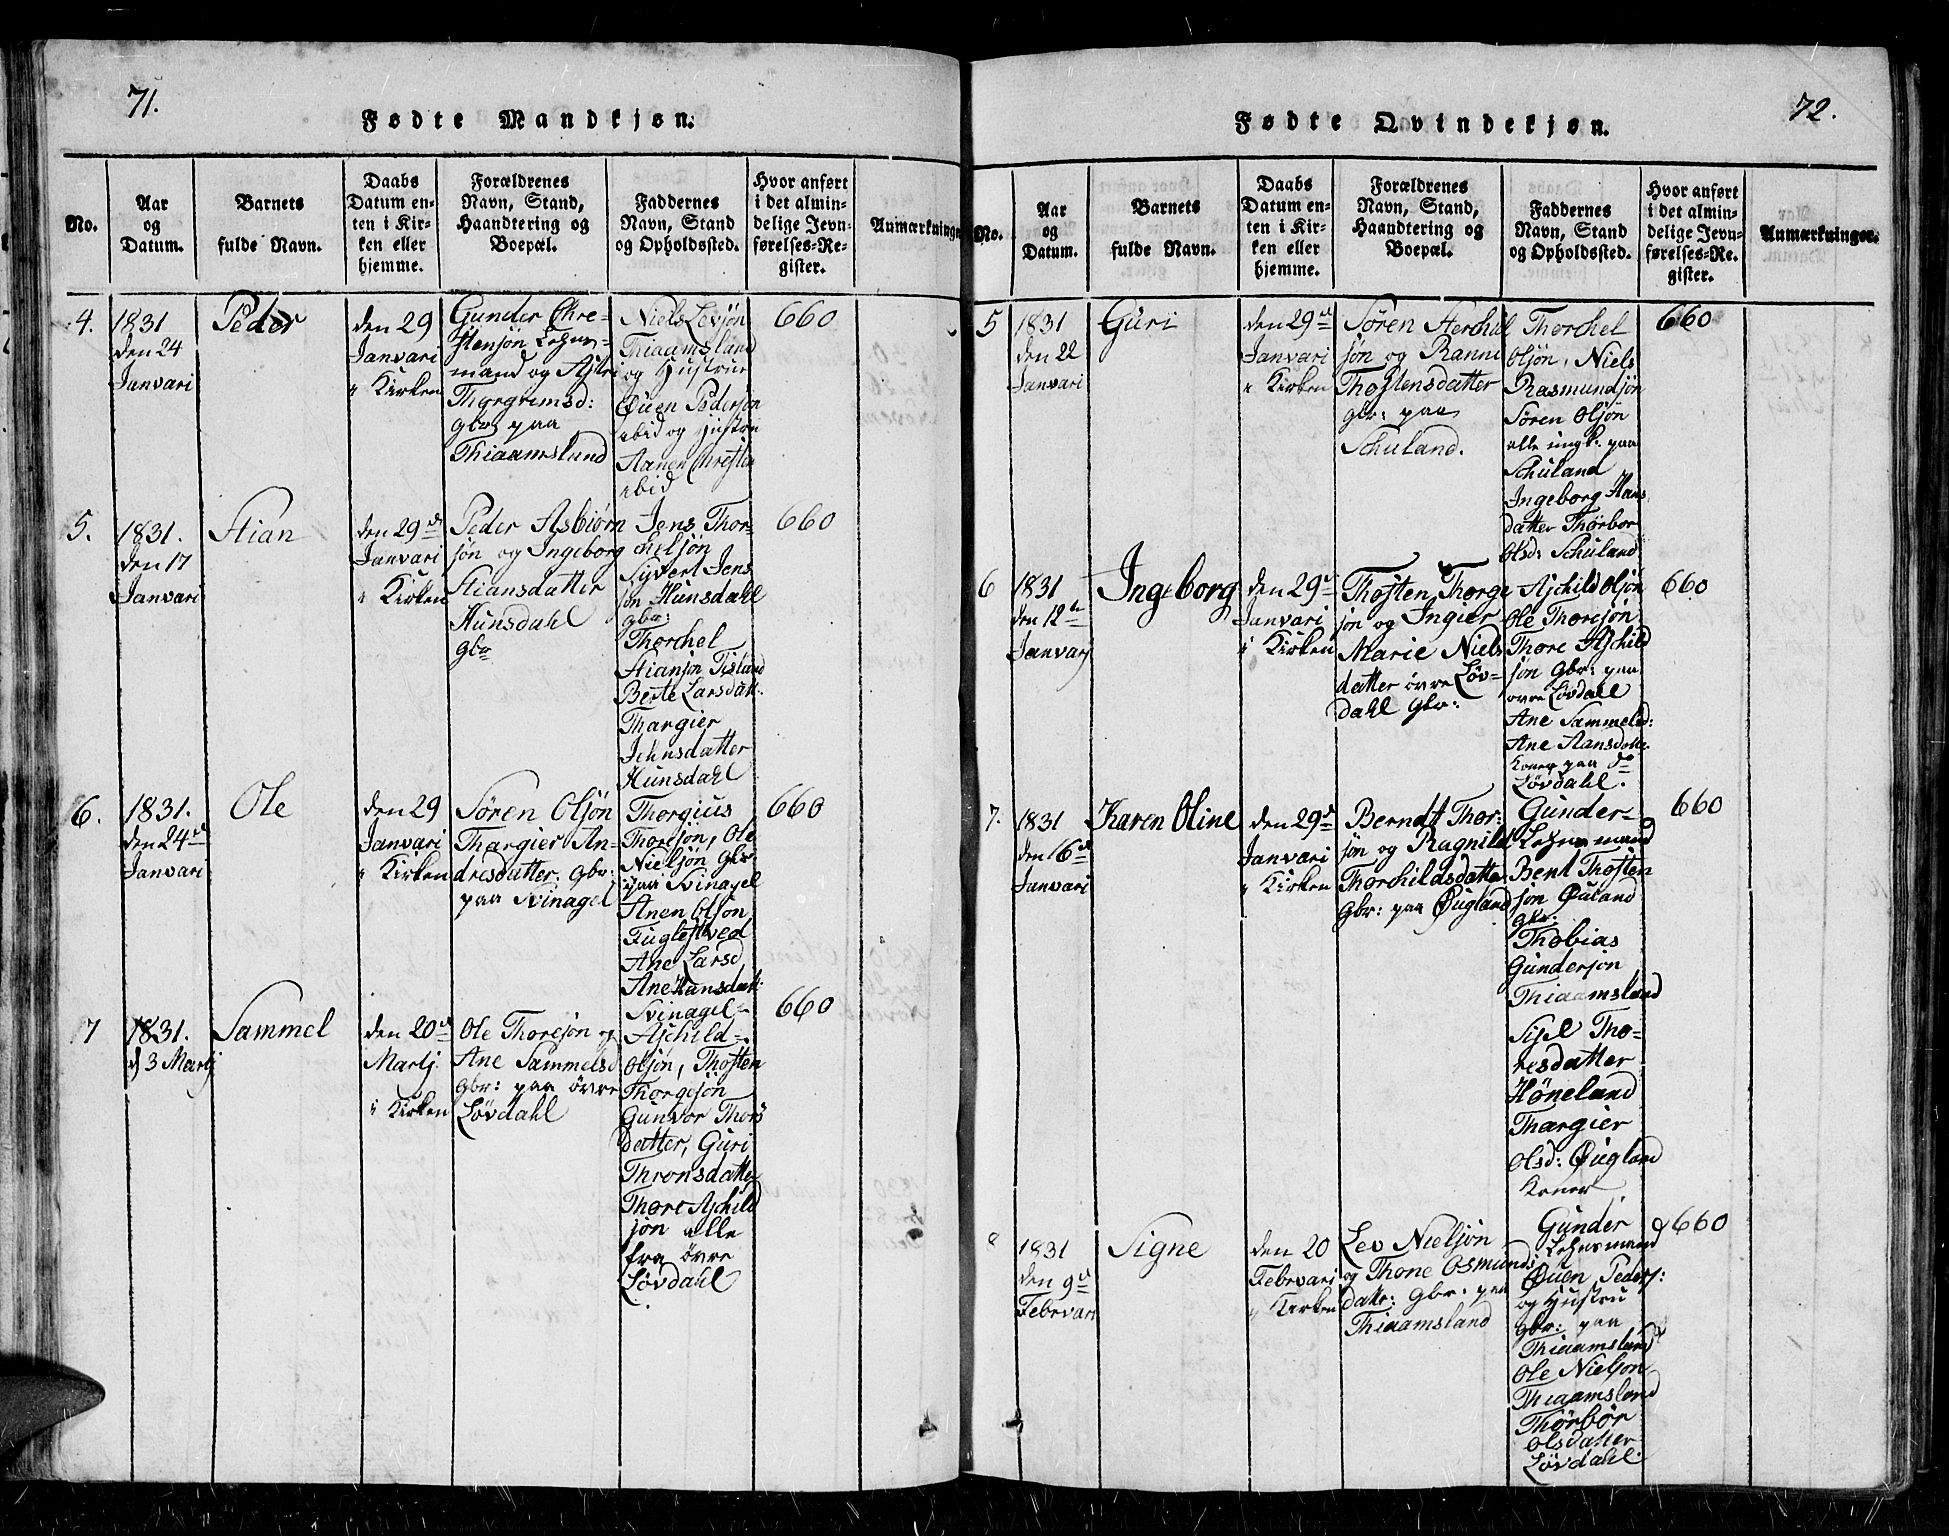 71.
Fødte Mandkjøn.
No.
Aar
og
Datum.
Barnets
fulde Navn.
Daabs
Datum en-
ten i Kir-
ken eller
hjemme.
Forældrenes
Navn, Stand,
Haandtering og
Boepæl.
Faddernes
Navn, Stand
og Opholdssted.
Hvor anført
i det almin-
delige Jevn-
førelses-Re-
gister.
Anmærkninger
4.
1831
den 24
Janvari
Peder
den 29
Janvari
i Kirken
Gunder Chre-
stensøn Lehns-
mand og Astri
Thorgrimsd:
gbr paa
Thiaamslund
Niels Levsøn
Thiaamsland
og Hustrue
Øuen Pedersøn
ibid og Hustru
Aanen Christen
ibid
660
5.
1831.
den 17
Janvari
Stian
den 29d
Janvari
i Kirken
Peder Asbiørn
søn og Ingeborg
Stiansdatter
Hunsdahl
gbr
Jens Thor-
chelsøn
Sivert Jens
søn Hunsdahl
gbr:
Thorchel
Stiansøn Tisland
Berte Larsdatt:
Thargier
Johnsdatter
Hunsdahl
660
6.
1831.
den 24d
Janvari
Ole
den 29
Janvari
i Kirken
Søren Olsøn
Thargier An-
dresdatter: gbr:
paa Svinagel
Thorgius
Thoresøn, Ole
Nielsøn gbr
paa Svinagel
Anen Olsøn
Fuglestved
Ane Larsd
Ane Hansdatt:
Svinagel
660
7
1831.
d 3 Martj
Sammel
den 20d
Martj
i Kirken
Ole Thoresøn og
Ane Sammelsd
gbr: paa øvre
Løvdahl
Aschild
Olsøn, Thosten
Thorgesøn
Gunvor Thors
datter, Guri
Thronsdatter
Thore Aschild
søn alle
fra øvre
Løvdahl
660
72.
Fødte Qvindekjøn.
No.
Aar
og
Datum.
Barnets
fulde Navn.
Daabs
Datum en-
ten i Kir-
ken eller
hjemme.
Forældrenes
Navn, Stand,
Haandtering og
Boepæl.
Faddernes
Navn, Stand
og Opholdssted.
Hvor anført
i det almin-
delige Jevn-
førelses-Re-
gister.
Anmærkninger.
5
1831
den 22
Janvari
Guri
den 29d
Janvari
i Kirken
Søren Terchel
søn og Ranni
Thostensdatter
gbr: paa
Schuland.
Thorchel
Olsøn, Niels
Rasmundsøn
Søren Olsøn
alle ungk: paa
Schuland
Ingeborg Hans
datter Thørbor
Olsd: Schuland
660
6
1831
den 12te
Janvarj
Ingeborg
den 29d
Janvari
i Kirken
Thosten Thorge
søn og Ingier
Marie Niels
datter øvre Løv-
dahl gbr:
Aschild Olsøn
Ole Thoresøn
Thore Aschild
søn gbr: paa
øvre Løvdahl
Ane Sammelsd:
Ane Aansdotte
Koner paa do
Løvdahl.
660
7.
1831
den 16d
Janvari
Karen Oline
den 29d
Janvari
i Kirken
Berndt Thor:
søn og Ragnild
Thorchildsdatter
gbr: paa Øugland
Gunder
Lehnsmand
Bent Thosten
søn Øuland
gbr:
Thobias
Gundersøn
Thiaamsland
Sisel Tho-
resdatter
Høneland
Thargier
Olsd: Øugland
Koner
660
8
1831
den 9d
Febrvari
Signe
den 20
Febrvari
i Kirken
Lev Nielsøn
og Thone Osmunds
datr: gbr: paa
Thiaamsland
Gunder
Lehnsmand
Øuen Peders:
og Hustru
gbr: paa
Thiaamsland
Ole Nielsøn
Thiaamsland
Thørbør
Olsdatter
Løvdahl.
660